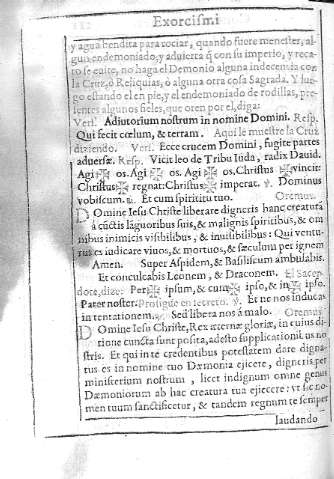 Exorcismi
y agua bendita para rociar, quando fuere menester, al-
gun endemoniado, y aduierta q̃ con su imperio, y reca-
to se euite, no haga el Demonio alguna indecencia con
la Cruz, ò Reliquias, ò alguna otra cosa Sagrada. Y lue-
go estando el en pie, y el endemoniado de rodillas, pre-
sentes algunos fieles, que oren por el, diga:
Vers. Adiutorium nostrum in nomine Domini. Resp.
Qui fecit cœlum, & terram. Aqui le muestre la Cruz
diziendo. Vers. Ecce crucem Domini, fugite partes
aduersæ. Resp. Vicit leo de Tribu Iuda, radix Dauid.
Agi ✠ os. Agi ✠ os. Agi ✠ os. Christus ✠ vincit:
Christus ✠ regnat: Christus ✠ imperat. ℣. Dominus
vobiscum. ℟. Et cum spiritu tuo. Oremus.
Domine Iesu Christe liberare digneris hanc creaturã
à cũctis lãguoribus suis, & malignis spiritibus, & om-
nibus inimicis visibilibus, & inuisibilibus: Qui ventu-
rus es iudicare viuos, & mortuos, & sæculum per ignem
Amen. Super Aspidem, & Basiliscum ambulabis.
Et conculcabis Leonem, & Draconem. El Sacer-
dote, dize: Per ✠ ipsum, & cum ✠ ipso, & in ✠ ipso.
Pater noster. Prosigue en secreto. ℣. Et ne nos inducas
in tentationem. ℟. Sed libera nos à malo. Oremus.
Domine Iesu Christe, Rex æternæ gloriæ, in cuius di-
tione cuncta sunt posita, adesto supplicationibus no
stris. Et qui in te credentibus potestatem dare digna-
tus es in nomine tuo Dæmonia ejicere, digneris per
ministerium nostrum, licet indignum omne genus
Dæmoniorum ab hac creatura tua ejicere: vt sic no-
men tuum sanctificetur, & tandem regnum te semper
laudando